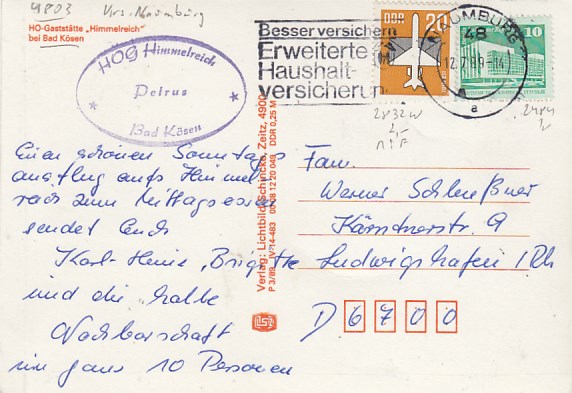 4803 Krs. Naumburg
HO-Gaststätte „Himmelreich"
bei Bad Kösen
HOG Himmelreich
Petrus
Bad Kösen
Besser versichern
Erweiterte
Haushalt-
versicherung
DDR 20
10
NAUMBURG
48
12.7.89-14
a
2832w
2484
Einen schönen Sonntags
ausflug aufs Himmel
reich zum Mittagessen
sendet Euch
Karl-Heinz, Brigitte
und die halbe
Nachbarschaft
im ganz 10 Personen
Verlag: Lichtbild-Schincke, Zeitz, 4900
P 3/89 IV-14-483 00 08 12 20 049 DDR 0,25 M
Fam.
Werner Schleußner
Kärntnerstr. 9
Ludwigshafen / Rh
D 6 7 0 0